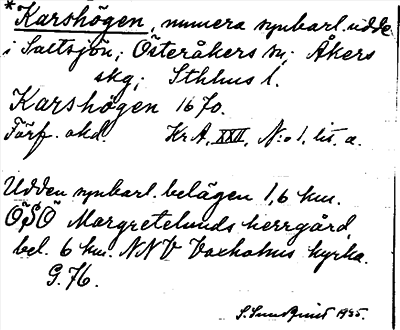 *Karshögen, numera synbarl. udde
i Saltsjön; Österåkers sn; Åkers
skg; Sthlms l.
Karshögen 1670.
Förf. okd. Kr.A, XXII, N:o 1, lit. a.
Udden synbarl. belägen 1,6 km.
ÖSÖ Margretelunds herrgård
bel. 6 km. NNV Vaxholms kyrka.
G.76.
S. Sundquist 1935.